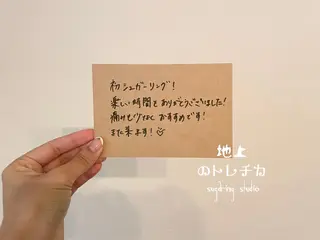 初シュガーリング!
楽しい時間をありがとうございました!
痛みも少なく おすすめです!
また来ます!
地上
のトレチカ
sugaring studio